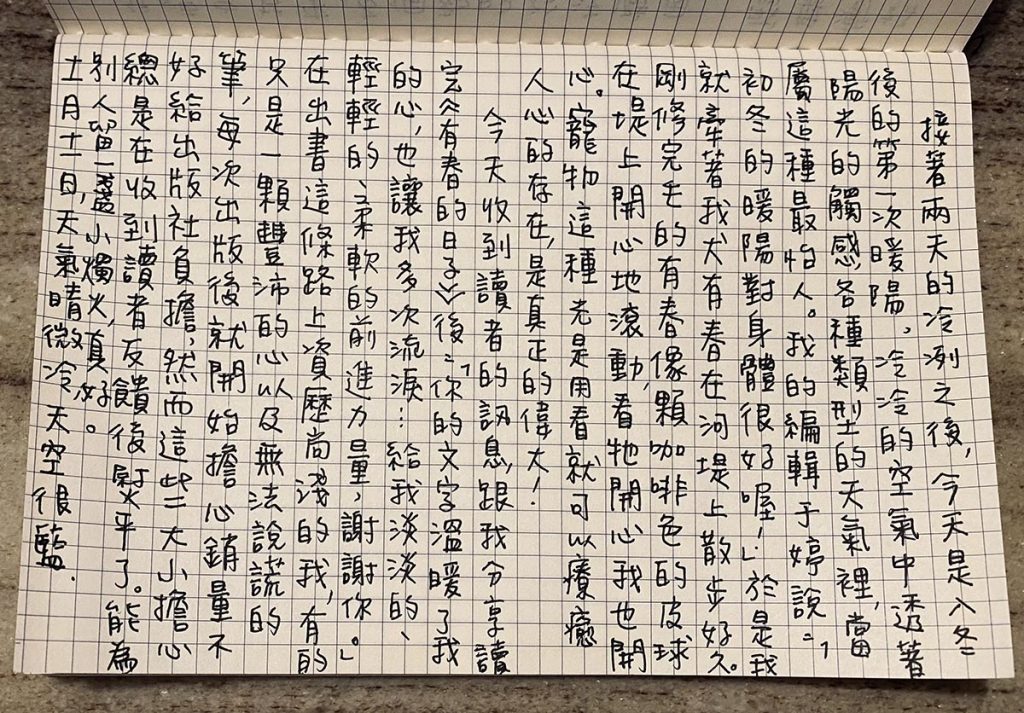 接著兩天的冷冽之後,今天是入冬
後的第一次暖陽。冷冷的空氣中透著
陽光的觸感,各種類型的天氣裡,當
屬這種最怡人。我的編輯于婷說:「
初冬的暖陽對身體很好喔!」於是我
就牽著我犬有春在河堤上散步好久。
剛修完毛的有春像顆咖啡色的皮球
在堤上開心地滾動,看牠開心我也開
心。寵物這種光是用看就可以療癒
人心的存在,是真正的偉大!
今天收到讀者的訊息,跟我分享讀
完《有春的日子》後:「你的文字溫暖了我
的心,也讓我多次流淚…給我淡淡的、
輕輕的、柔軟的前進力量,謝謝你。」
在出書這條路上資歷尚淺的我,有的
只是一顆豐沛的心以及無法說謊的
筆,每次出版後就開始擔心銷量不
好給出版社負擔,然而這些大小擔心
總是在收到讀者反饋後熨平了。能為
別人留一盞小燭火,真好。
十一月十一日,天氣晴微冷,天空很藍.